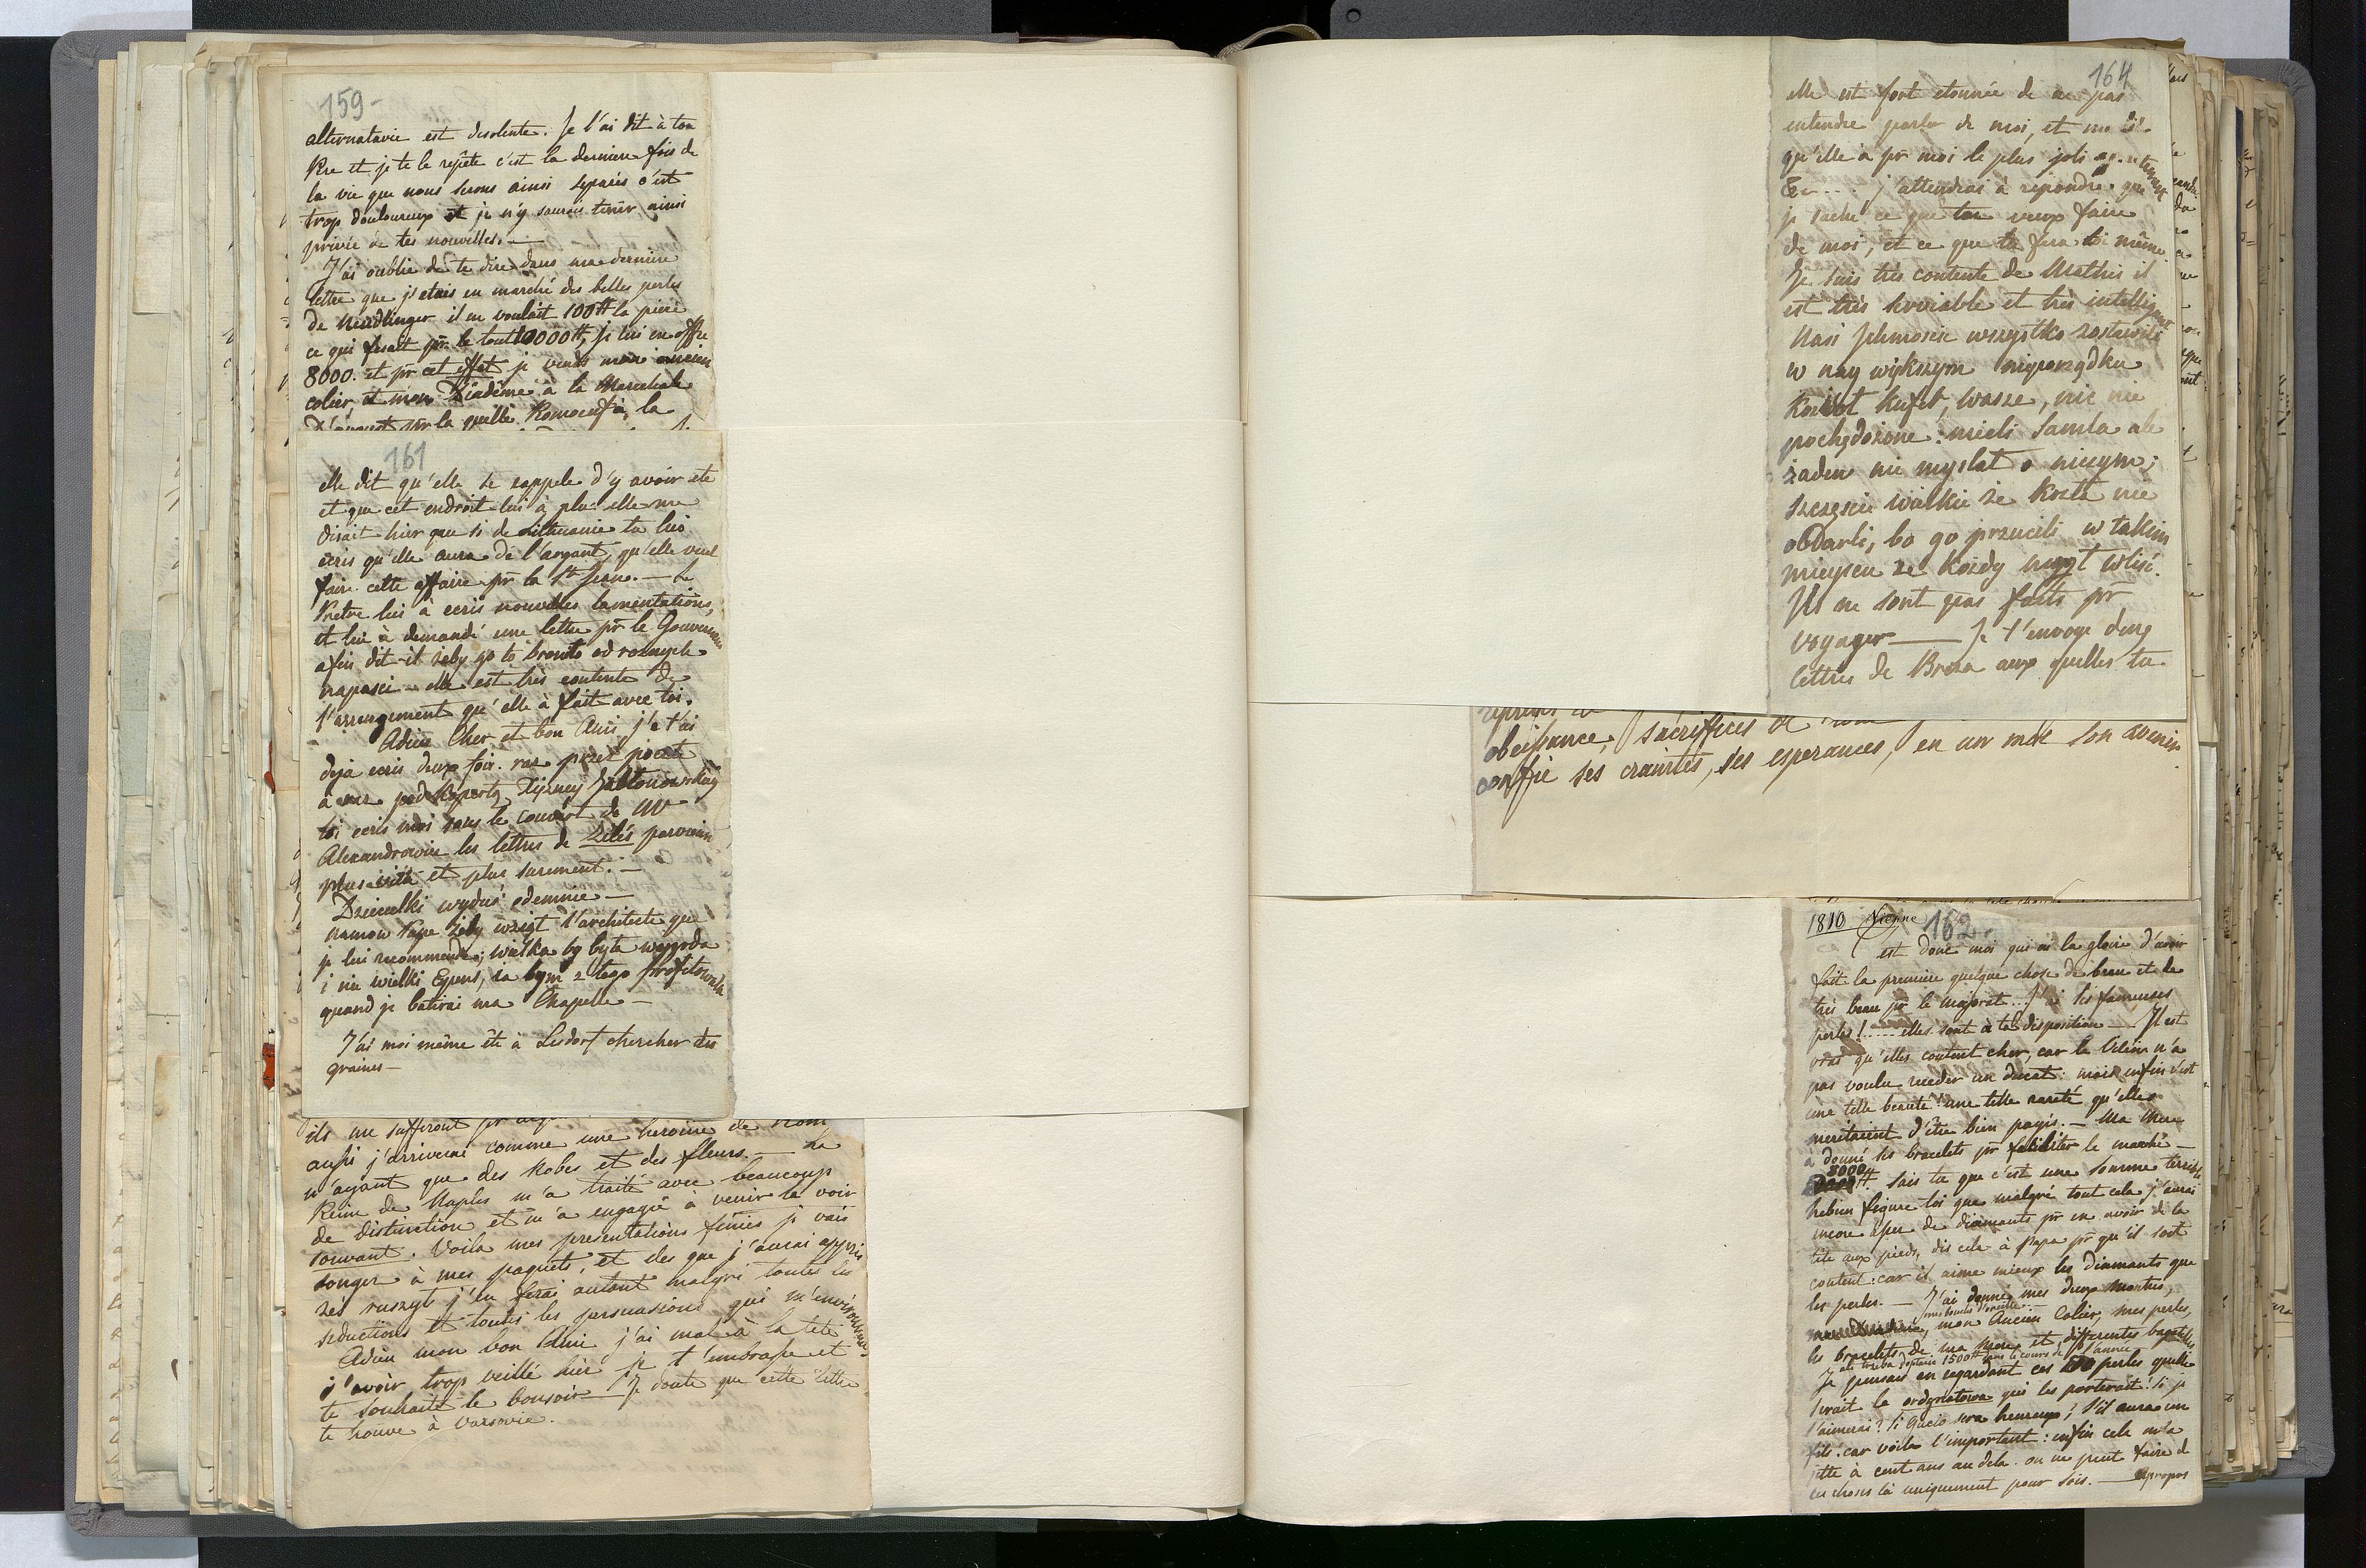 159-
alternatavie est desolente. Je l'ai dit à ton
Pere et je te le repête c'est la derniere fois de
la vie que nous serons ainsi separés c'est
trop douloureux et je n'y saurois tenir ainsi
privée de tes nouvelles. —
J'ai oublié de te dire dans ma derniere
lettre que j'etais en marché des belles perles
de Neudlinger il en voulait 100# la piece
ce qui fesait pr le tout 10000#, je lui en offre
8000. et pr cet effet je vends mon ancien
colier, et mon Diadême à la Marechale
D'avoust pr la quelle Romoeuf à la
161
elle dit qu'elle se rappele d'y avoir ete
et que cet endroit lui à plu. elle me
disait hier que si de Lithuanie tu lui
ecris qu'elle aura de l'argent, qu'elle veut
faire cette affaire pr la St Jean. — Le
Pretre lui à ecris nouvelles lamentations,
et lui à demandé une lettre pr le Gouverneur
afin dit-il zeby go to bronito od roznych
napasci — elle est très contente de
l'arrangement qu'elle à fait avec toi.
Adieu Cher et bon Ami, je t'ai
deja ecris deux fois. raz przez poczte
à une pod kopertą Xiężney Jabłonowskiey
toi ecris moi sous le couvert de Mr
Alexandrowicz les lettres de Zélés parvienn
plus vite et plus surement. —
Dzieciulki usyduś odemnie —
namow Pape zeby wziął l'architecte que
je lui recommende; wielka by była wygoda
i nie wielki Expens, ia bym z tego profitowała
quand je batirai ma Chapelle —
J'ai moi même été à Lesdorf chercher des
graines —
ils me suffiront pr
aussi j'arriverai comme une heroine de
n'ayant que des Robes et des fleurs. — La
Reine de Naples m'a traité avec beaucoup
de distinction et m'a engagée à venir la voir
souvant. Voila mes presentations finies je vais
songer à mes paquets, et des que j'aurai appris
żeś ruszył j'en ferai autant malgré toutes les
seductions et toutes les persuasions qui m'environnent.
Adieu mon bon Ami j'ai mal à la tete
d'avoir trop veillé hier je t'embrasse et
te souhaite le bonsoir — Je doute que cette lettre
te trouve à Varsovie.
164
elle est fort etonnée de ne pas
entendre parler de moi, et me dit
qu'elle à pr moi le plus joli
j'attendrai à repondre que
je sache ce que tu veux faire
de moi, et ce que tu fera toi même.
Je suis très contente de Mathis il
est très serviable et très intelligent
Nasi Jchmoscie wszystko zostawili
w nay większym nieporządku
kufel, wasze, nic nie
pochędożone: mieli Samla ale
żaden nie myslał o niczym;
szczęscie wielkie że Kozła nie
obdarli, bo go przucili w takim
mieyscu że każdy mógł wliść.
Ils ne sont pas faits pr
voyager — Je t'envoye deux
lettres de Broza aux quelles tu
obeissance, sacriffices
confie ses craintes, ses esperances, en un mot son avenir
1810 Vienne 162.
C'est donc moi qui ai la gloire d'avoir
fait la premiere quelque chose de beau et de
tres beau pr le majorat... J'ai les fameuses
perles!..... elles sont à ta disposition — Il est
vrai qu'elles coutent cher, car le Vilain n'a
pas voulu ceder un ducat: mais enfin c'est
une telle beauté! une telle rareté qu'elles
meritaient d'être bien payés. — Ma Mere
à donné ses bracelets pr faciliter le marché —
8000#. Sais tu que c'est une somme terrible
hebien figure toi que malgré tout cela j'aurai
encore assez de diamants pr en avoir de la
tête aux pieds, dis cela à Papa pr qu'il soit
content: car il aime mieux les diamants que
les perles. — J'ai donné mes deux montres,
mes boucles d'oreille
mon Ancien Colier, mes perles,
les bracelets de ma Mere et differentes bagatelles
ale trzeba dopłacic 1500# dans le cours de l'année
Je pensais en regardant ces 100 perles quelle
serait la ordynatowa qui les porterait! si je
l'aimerai? si Gucio sera heureux; s'il aura un
fils: car voila l'important: enfin cela m'a
jetté à cent ans au dela. on ne peut faire d
ces choses là uniquement pour sois. — Apropos